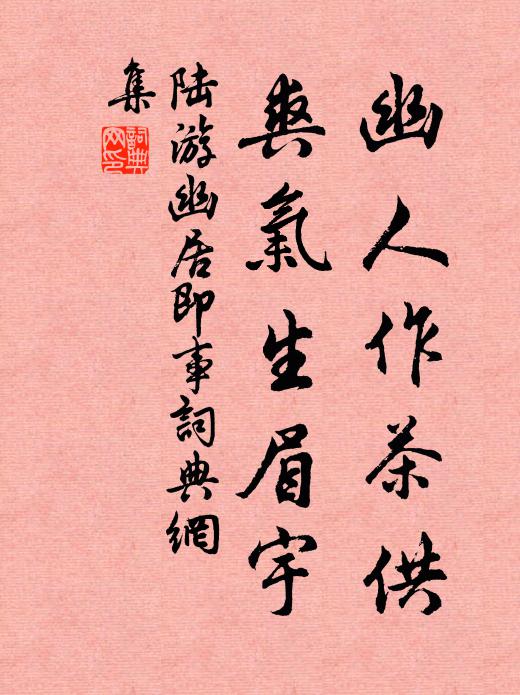 幽人作茶供
爽氣生眉宇
陸游幽居即事詞典網
集
詞典
网印